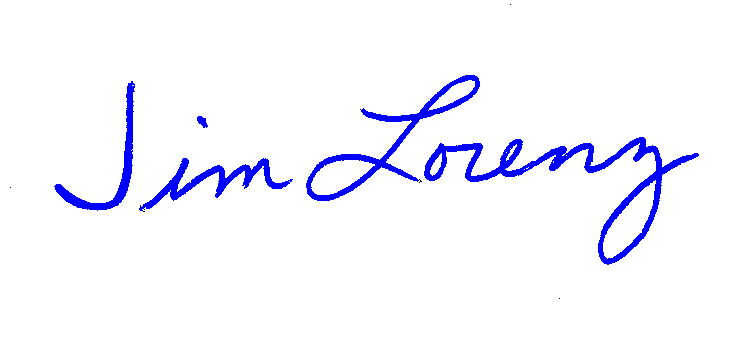 Jim Lorenz